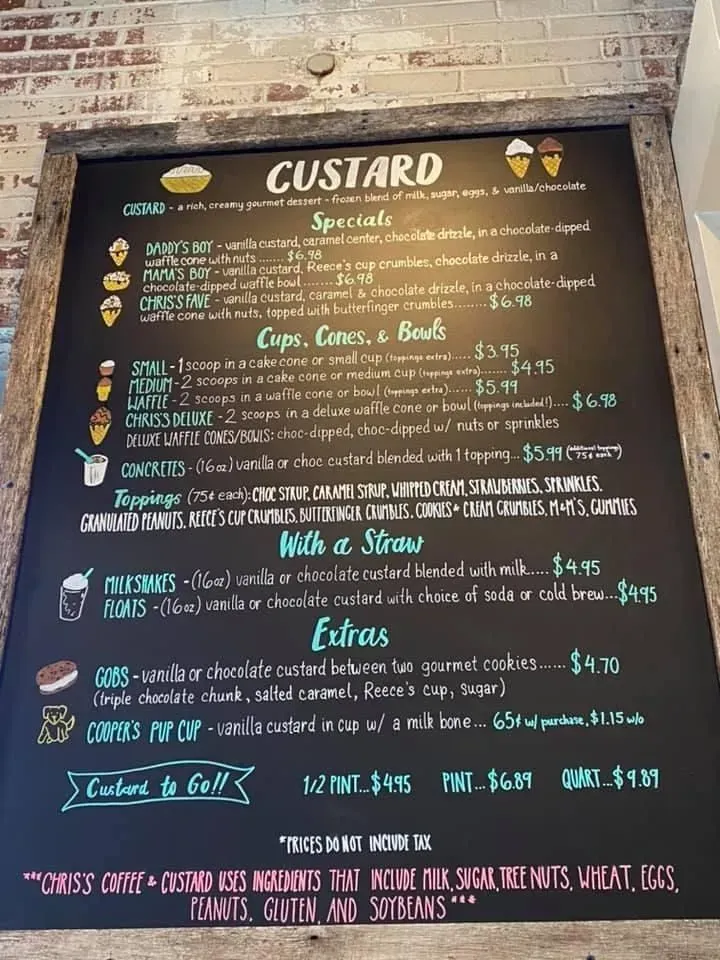 CUSTARD
CUSTARD - a rich, creamy gourmet dessert - frozen blend of milk, sugar, eggs, & vanilla/chocolate
Specials
DADDY'S BOY - vanilla custard, caramel center, chocolate drizzle, in a chocolate-dipped
waffle cone with nuts ....... $6.98
MAMA'S BOY - vanilla custard, Reece's cup crumbles, chocolate drizzle, in a
chocolate-dipped waffle bowl....... $6.98
CHRIS'S FAVE - vanilla custard, caramel & chocolate drizzle, in a chocolate-dipped
waffle cone with nuts, topped with butterfinger crumbles........ $6.98
Cups, Cones, & Bowls
SMALL - 1 scoop in a cake cone or small cup (toppings extra)..... $3.95
MEDIUM - 2 scoops in a cake cone or medium cup (toppings extra)....... $4.95
WAFFLE - 2 scoops in a waffle cone or bowl (toppings extra)...... $5.99
CHRIS'S DELUXE - 2 scoops in a deluxe waffle cone or bowl (toppings included!).... $6.98
DELUXE WAFFLE CONES/BOWLS: choc-dipped, choc-dipped w/ nuts or sprinkles
CONCRETES - (16oz) vanilla or choc custard blended with 1 topping... $5.99 (additional toppings 75¢ each)
Toppings (75¢ each): CHOC SYRUP, CARAMEL SYRUP, WHIPPED CREAM, STRAWBERRIES, SPRINKLES,
GRANULATED PEANUTS, REECE'S CUP CRUMBLES, BUTTERFINGER CRUMBLES, COOKIES & CREAM CRUMBLES, M&M'S, GUMMIES
With a Straw
MILKSHAKES - (16oz) vanilla or chocolate custard blended with milk..... $4.95
FLOATS - (16oz) vanilla or chocolate custard with choice of soda or cold brew...$4.95
Extras
GOBS - vanilla or chocolate custard between two gourmet cookies...... $4.70
(triple chocolate chunk, salted caramel, Reece's cup, sugar)
COOPER'S PUP CUP - vanilla custard in cup w/ a milk bone... 65¢ w/ purchase, $1.15 w/o
Custard to Go!! 1/2 PINT...$4.95 PINT...$6.89 QUART...$9.89
*PRICES DO NOT INCLUDE TAX
***CHRIS'S COFFEE & CUSTARD USES INGREDIENTS THAT INCLUDE MILK, SUGAR, TREE NUTS, WHEAT, EGGS,
PEANUTS, GLUTEN, AND SOYBEANS***